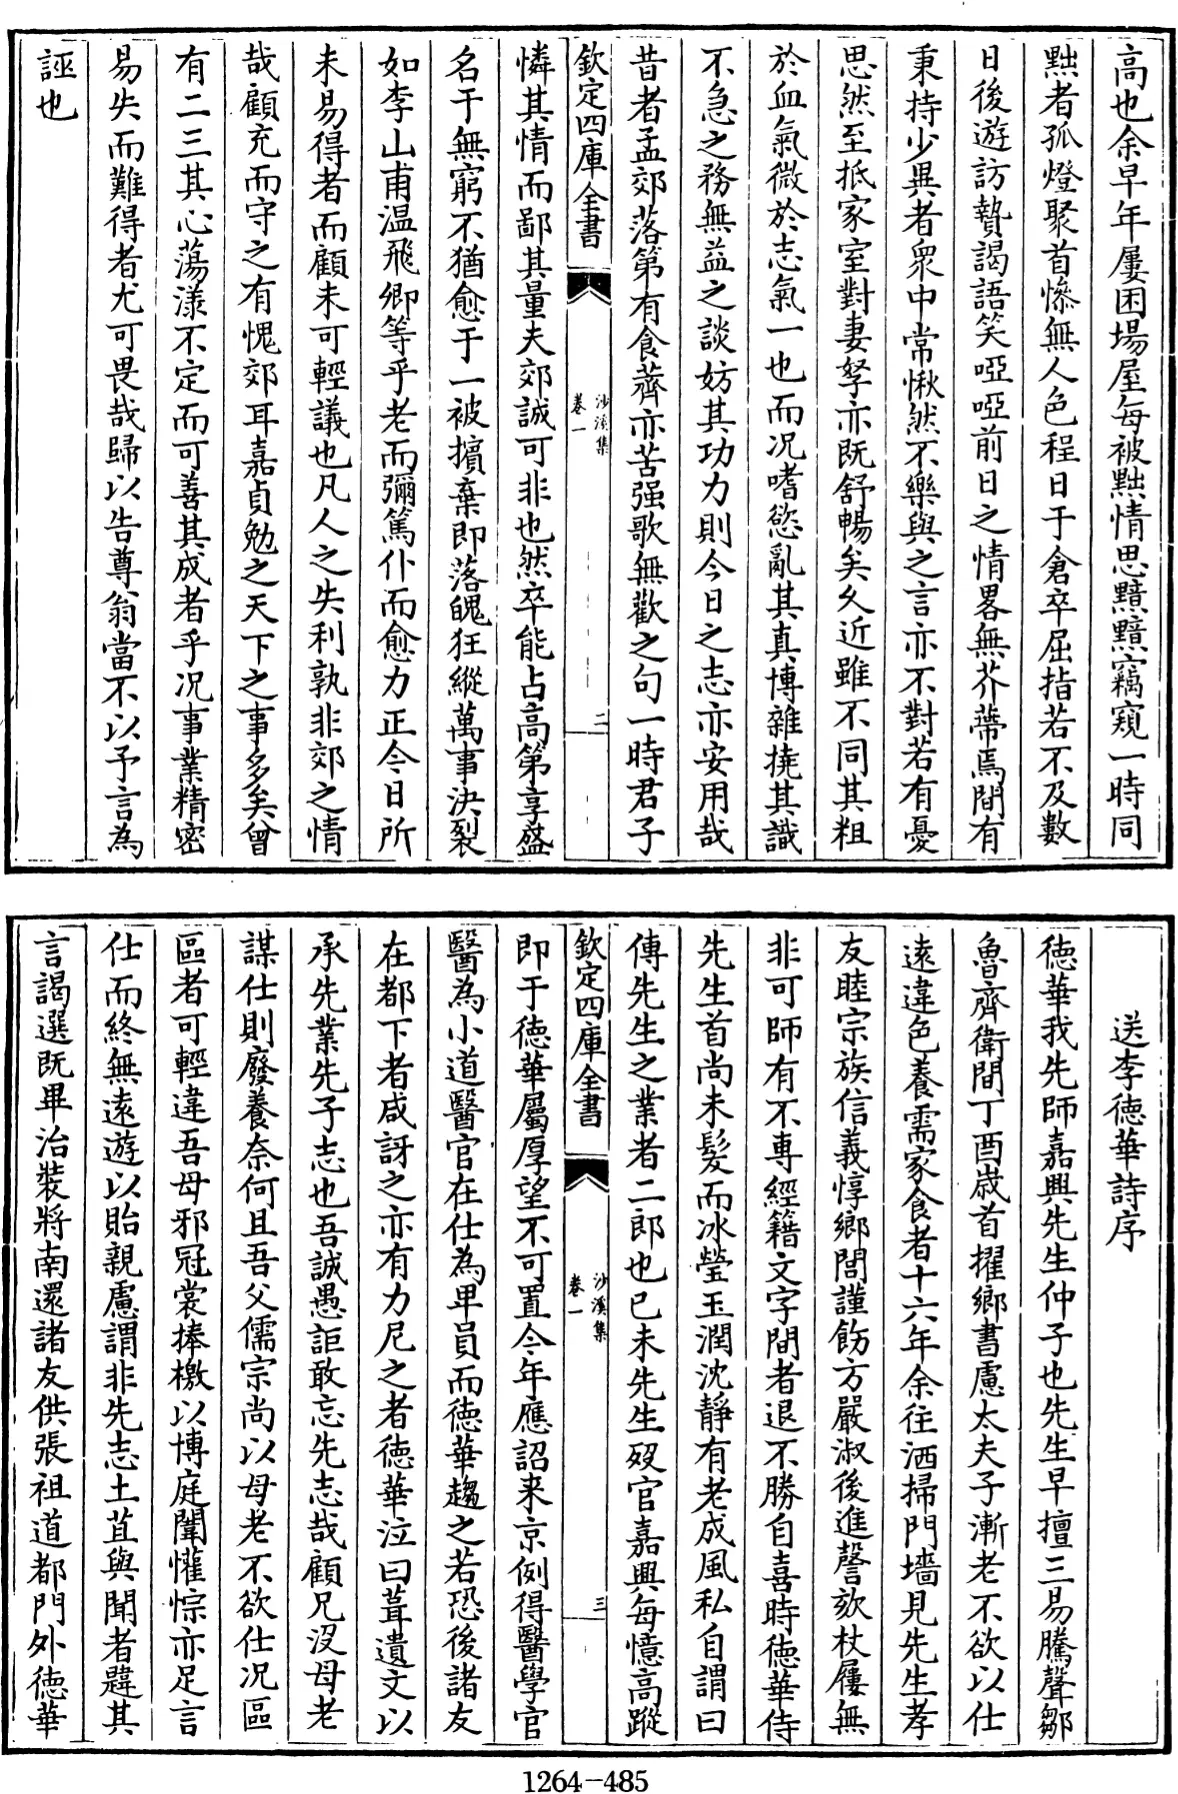 高也余早年屢困場屋每被黜情思黯黯竊窺一時同
黜者孤燈聚首慘無人色程日于倉卒屈指若不及數
日後遊訪贄謁語笑啞啞前日之情畧無芥蔕焉間有
秉持少異者衆中常愀然不樂與之言亦不對若有憂
思然至抵家室對妻孥亦既舒暢矣久近雖不同其粗
於血氣微於志氣一也而况嗜慾亂其真博雜撓其識
不急之務無益之談妨其功力則今日之志亦安用哉
昔者孟郊落第有食薺亦苦强歌無歡之句一時君子
欽定四庫全書
沙溪集
卷一
二
憐其情而鄙其量夫郊誠可非也然卒能占高第享盛
名于無窮不猶愈于一被擯棄即落魄狂縱萬事決裂
如李山甫温飛卿等乎老而彌篤仆而愈力正今日所
未易得者而顧未可輕議也凡人之失利孰非郊之情
哉顧充而守之有愧郊耳嘉貞勉之天下之事多矣曾
有二三其心蕩漾不定而可善其成者乎况事業精密
易失而難得者尤可畏哉歸以告尊翁當不以予言為
誣也
送李徳華詩序
徳華我先師嘉興先生仲子也先生早擅三易騰聲鄒
魯齊衛間丁酉嵗首擢鄉書慮太夫子漸老不欲以仕
遠違色養需家食者十六年余往洒掃門墻見先生孝
友睦宗族信義惇鄉閭謹飭方嚴淑後進謦欬杖屨無
非可師有不專經籍文字間者退不勝自喜時徳華侍
先生首尚未髮而冰瑩玉潤沈靜有老成風私自謂曰
傳先生之業者二郎也已未先生殁官嘉興每憶高蹤
欽定四庫全書
沙溪集
卷一
三
即于徳華屬厚望不可置今年應詔来京例得醫學官
醫為小道醫官在仕為卑員而徳華趨之若恐後諸友
在都下者咸訝之亦有力尼之者徳華泣曰葺遺文以
承先業先子志也吾誠愚詎敢忘先志哉顧兄沒母老
謀仕則廢養奈何且吾父儒宗尚以母老不欲仕况區
區者可輕違吾母邪冠裳捧檄以博庭闈懽悰亦足言
仕而終無遠遊以貽親慮謂非先志土苴與聞者韙其
言謁選既畢治裝將南還諸友供張祖道都門外徳華
1264-485